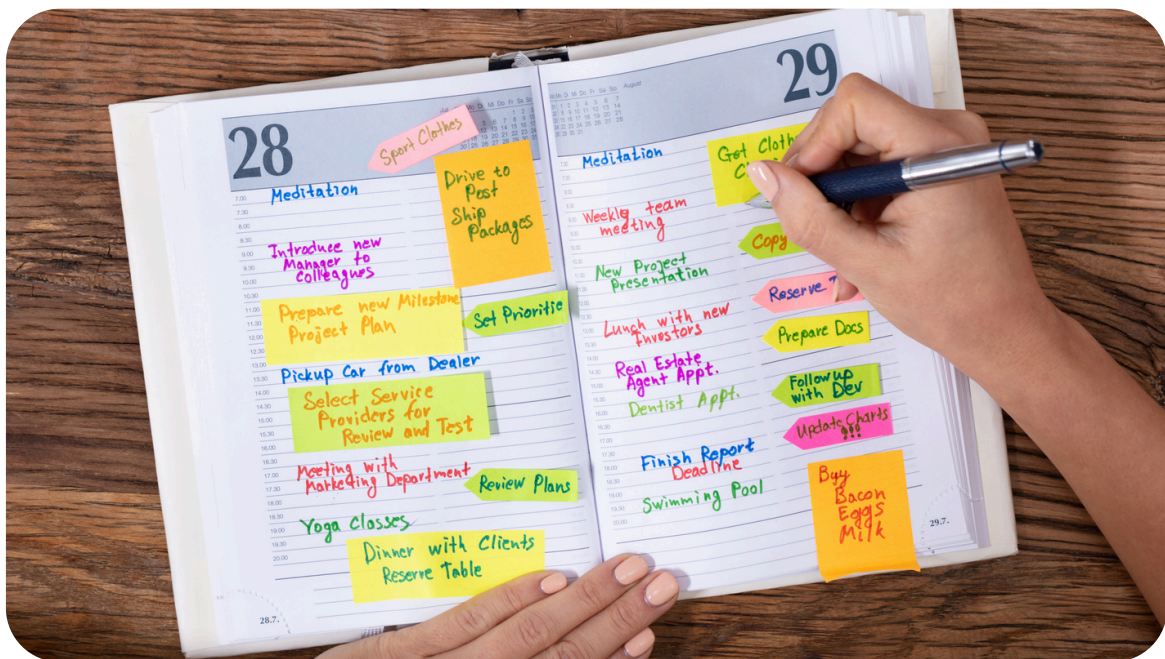 28
Sport Clothes
Meditation
Drive to
Post
Ship
Packages
Introduce new
Manager to
Colleagues
Prepare new Milestone
Project Plan
Set Prioritie
Pickup Car from Dealer
Select Service
Providers for
Review and Test
Meeting with
Marketing Department
Review Plans
Yoga Classes
Dinner with Clients
Reserve Table
28.7.
29
August
Meditation
Get Cloth
Weekly team
meeting
Copy
New Project
Presentation
Reserve
Lunch with new
Investors
Prepare Docs
Real Estate
Agent Appt.
Follow up
with Dev
Dentist Appt.
Update Charts
!!!
Finish Report
Deadline
Swimming Pool
Buy
Bacon
Eggs
Milk
29.7.